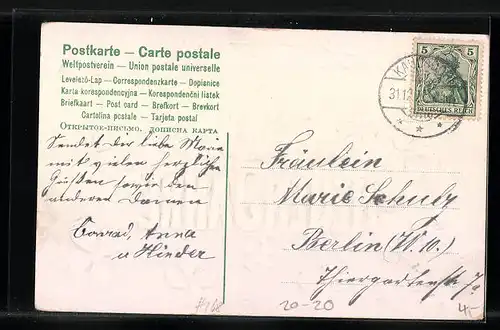 Postkarte — Carte postale
Weltpostverein — Union postale universelle
Levelező-Lap — Correspondenzkarte — Dopisnice
Karta korespondencyjna — Korespondenční lístek
Briefkaart — Post card — Brefkort — Brevkort
Cartolina postale — Tarjeta postal
Открытое письмо. дописна карта
Sendet dir liebe Marie
mit vielen herzlichen
Grüßen sowie den
anderen Damen
Conrad, Anna
u Kinder
5 5
DEUTSCHES REICH
31.12
Fräulein
Marie Schulz
Berlin (W. 10.)
Thiergartenstr.
20-20
4,-